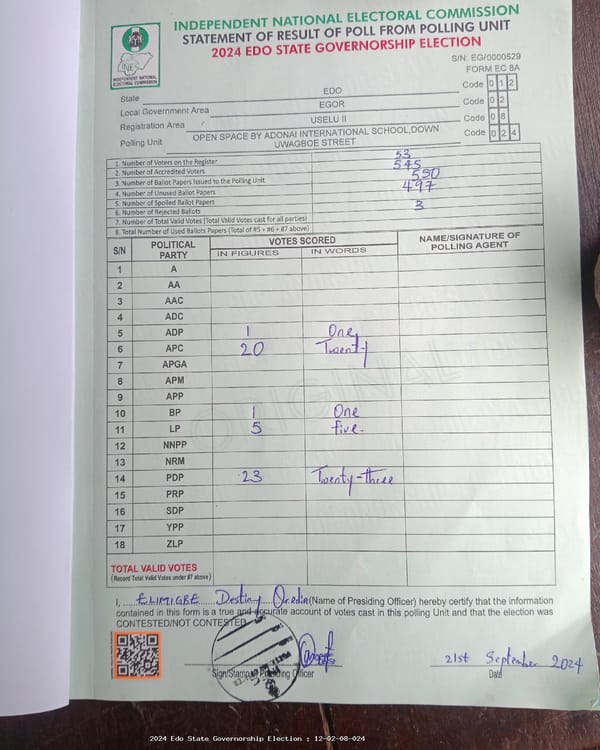 INDEPENDENT NATIONAL ELECTORAL COMMISSION
STATEMENT OF RESULT OF POLL FROM POLLING UNIT
2024 EDO STATE GOVERNORSHIP ELECTION
S/N: EG/0000529
FORM EC 8A
INDEPENDENT NATIONAL ELECTORAL COMMISSION
State EDO Code 0 1 2
Local Government Area EGOR Code 0 2
Registration Area / USELU II Code 0 8
Polling Unit OPEN SPACE BY ADONAI INTERNATIONAL SCHOOL,DOWN UWAGBOE STREET Code 0 2 4
1. Number of Voters on the Register
53
2. Number of Accredited Voters
545
3. Number of Ballot Papers Issued to the Polling Unit
550
4. Number of Unused Ballot Papers
497
5. Number of Spoiled Ballot Papers
6. Number of Rejected Ballots
3
7. Number of Total Valid Votes (Total Valid Votes cast for all parties)
8. Total Number of Used Ballots Papers (Total of #5 + #6 + #7 above)
S/N POLITICAL PARTY VOTES SCORED NAME/SIGNATURE OF POLLING AGENT
IN FIGURES IN WORDS
1 A
2 AA
3 AAC
4 ADC
5 ADP 1 One
6 APC 20 Twenty
7 APGA
8 APM
9 APP
10 BP 1 One
11 LP 5 five.
12 NNPP
13 NRM
14 PDP 23 Twenty-three
15 PRP
16 SDP
17 YPP
18 ZLP
ORIGINAL
TOTAL VALID VOTES
(Record Total Valid Votes under #7 above)
I, ELIMIGBE Destiny (Name of Presiding Officer) hereby certify that the information
contained in this form is a true and accurate account of votes cast in this polling Unit and that the election was
CONTESTED/NOT CONTESTED
Sign/Stamp Presiding Officer
21st September 2024
Date
2024 Edo State Governorship Election : 12-02-08-024